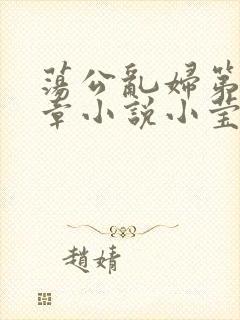 蕩公亂婦第
章小説小莹
趙婧